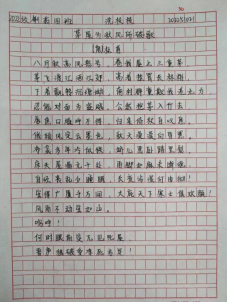 茅屋为秋风所破歌
八月秋高风怒号 卷我屋上三重茅
茅飞渡江洒江郊 高者挂罥长林梢
下者飘转沉塘坳 南村群童欺我老无力
忍能对面为盗贼 公然抱茅入竹去
唇焦口燥呼不得 归来倚杖自叹息
俄顷风定云墨色 秋天漠漠向昏黑
布衾多年冷似铁 娇儿恶卧踏里裂
床头屋漏无干处 雨脚如麻未断绝
自经丧乱少睡眠 长夜沾湿何由彻!
安得广厦千万间 大庇天下寒士俱欢颜!
风雨不动安如山
呜呼!
何时眼前突兀见此屋
吾庐独破受冻死亦足!